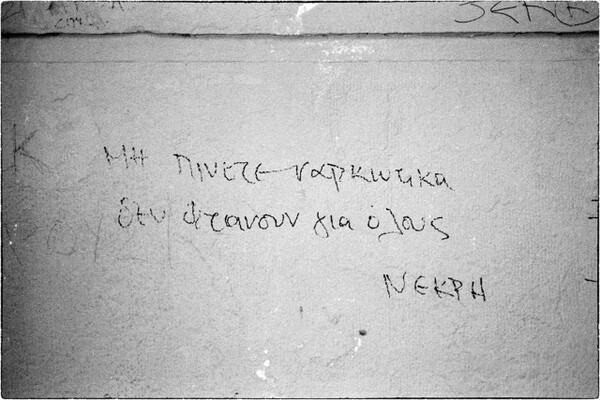 ΜΗ ΠΙΝΕΤΕ ναρκωτικα
δεν φτανουν για όλους
ΝΕΚΡΗ